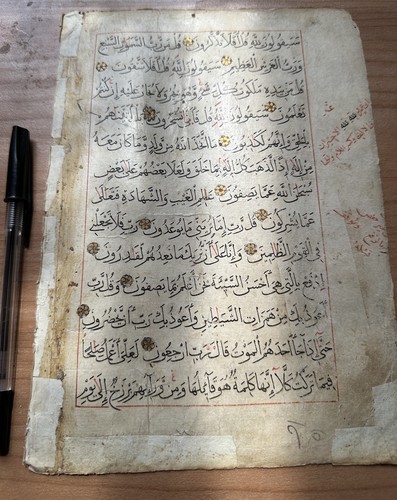 سَيَقُولُونَ لِلَّهِ قُلْ أَفَلَا تَذَكَّرُونَ قُلْ مَنْ رَبُّ السَّمٰوٰتِ السَّبْعِ
وَرَبُّ الْعَرْشِ الْعَظِيمِ سَيَقُولُونَ لِلَّهِ قُلْ أَفَلَا تَتَّقُونَ
قُلْ مَنْ بِيَدِهِ مَلَكُوتُ كُلِّ شَيْءٍ وَهُوَ يُجِيرُ وَلَا يُجَارُ عَلَيْهِ إِنْ كُنْتُمْ
تَعْلَمُونَ سَيَقُولُونَ لِلَّهِ قُلْ فَأَنَّى تُسْحَرُونَ بَلْ أَتَيْنَاهُمْ
بِالْحَقِّ وَإِنَّهُمْ لَكَاذِبُونَ مَا اتَّخَذَ اللَّهُ مِنْ وَلَدٍ وَمَا كَانَ مَعَهُ
مِنْ إِلٰهٍ إِذًا لَذَهَبَ كُلُّ إِلٰهٍ بِمَا خَلَقَ وَلَعَلَا بَعْضُهُمْ عَلَى بَعْضٍ
سُبْحَانَ اللَّهِ عَمَّا يَصِفُونَ عَالِمِ الْغَيْبِ وَالشَّهَادَةِ فَتَعَالَى
عَمَّا يُشْرِكُونَ قُلْ رَبِّ إِمَّا تُرِيَنِّي مَا يُوعَدُونَ رَبِّ فَلَا تَجْعَلْنِي
فِي الْقَوْمِ الظَّالِمِينَ وَإِنَّا عَلَى أَنْ نُرِيَكَ مَا نَعِدُهُمْ لَقَادِرُونَ
ادْفَعْ بِالَّتِي هِيَ أَحْسَنُ السَّيِّئَةَ نَحْنُ أَعْلَمُ بِمَا يَصِفُونَ وَقُلْ رَبِّ
أَعُوذُ بِكَ مِنْ هَمَزَاتِ الشَّيَاطِينِ وَأَعُوذُ بِكَ رَبِّ أَنْ يَحْضُرُونِ
حَتَّى إِذَا جَاءَ أَحَدَهُمُ الْمَوْتُ قَالَ رَبِّ ارْجِعُونِ لَعَلِّي أَعْمَلُ صَالِحًا
فِيمَا تَرَكْتُ كَلَّا إِنَّهَا كَلِمَةٌ هُوَ قَائِلُهَا وَمِنْ وَرَائِهِمْ بَرْزَخٌ إِلَى يَوْمِ